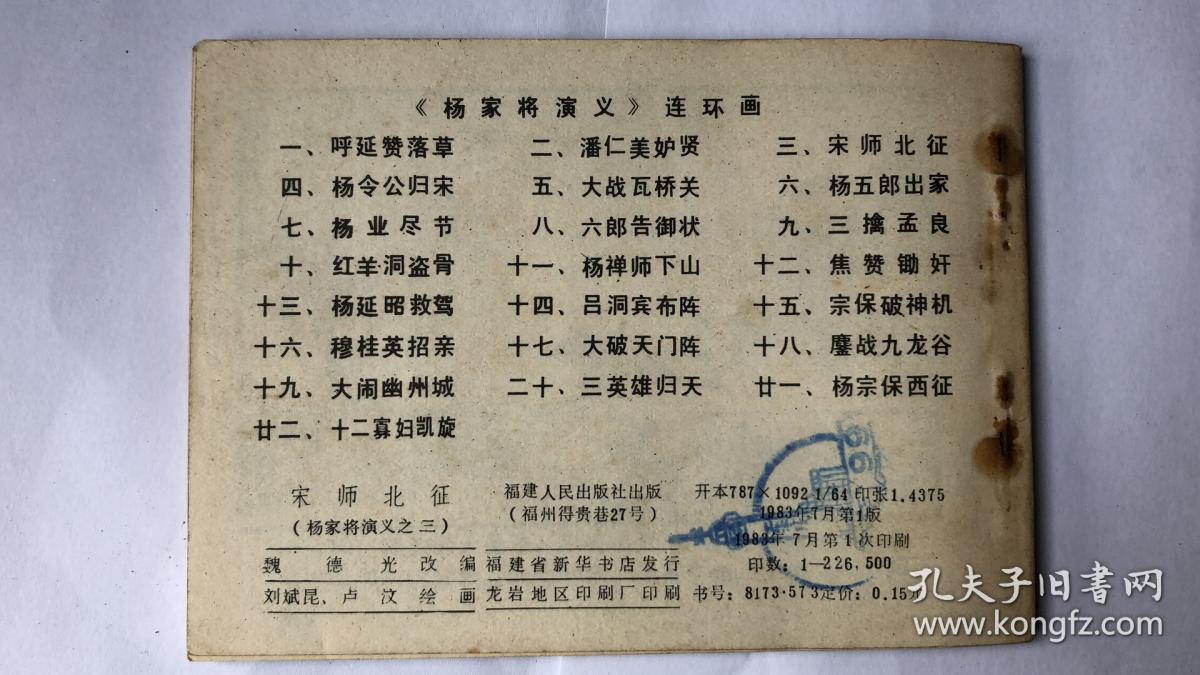 《杨家将演义》连环画
一、呼延赞落草 二、潘仁美妒贤 三、宋师北征
四、杨令公归宋 五、大战瓦桥关 六、杨五郎出家
七、杨业尽节 八、六郎告御状 九、三擒孟良
十、红羊洞盗骨 十一、杨禅师下山 十二、焦赞锄奸
十三、杨延昭救驾 十四、吕洞宾布阵 十五、宗保破神机
十六、穆桂英招亲 十七、大破天门阵 十八、鏖战九龙谷
十九、大闹幽州城 二十、三英雄归天 廿一、杨宗保西征
廿二、十二寡妇凯旋
宋师北征
(杨家将演义之三)
魏德光改编
刘斌昆、卢汶绘画
福建人民出版社出版
(福州得贵巷27号)
福建省新华书店发行
龙岩地区印刷厂印刷
开本787×1092 1/64 印张1.4375
1983年7月第1版
1983年7月第1次印刷
印数:1—226,500
书号:8173·573定价:0.15元
孔夫子旧书网
www.kongfz.com